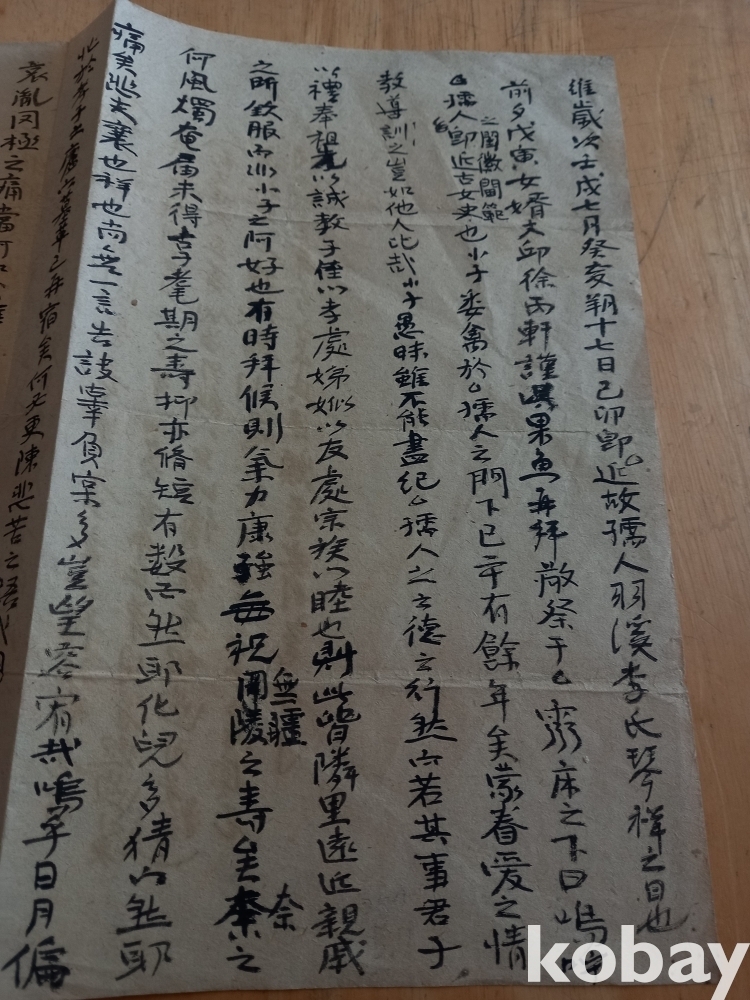 維歲次壬戌七月癸亥朔十七日己卯卽近故孺人羽溪李氏琴祥之日也
前夕戊寅女婿大邱徐丙軒謹具果魚再拜敬祭于靈床之下曰嗚呼
孺人卽近古女史也小子委禽於孺人之門下已十有餘年矣蒙眷愛之情
之閨徽閫範
敎導訓之豈如他人比哉小子愚昧雖不能盡紀孺人之之德之行然以若其事君子
以禮奉祖先以誠敎子侄以孝處娣姒以友處宗族以睦也則此皆隣里遠近親戚
之所欽服而小子之阿好也有時拜候則氣力康强每祝岡陵之壽矣秦之
無疆
奈
何風燭奄屆未得享耄期之壽抑亦脩短有數而然耶化兒多猜而然耶
痛矣悲夫襄也祥也尙無一言告訣辜負實多豈望容宥哉嗚乎日月偏
再宿矣何必更陳悲苦之語哉
哀胤罔極之痛當何
kobay